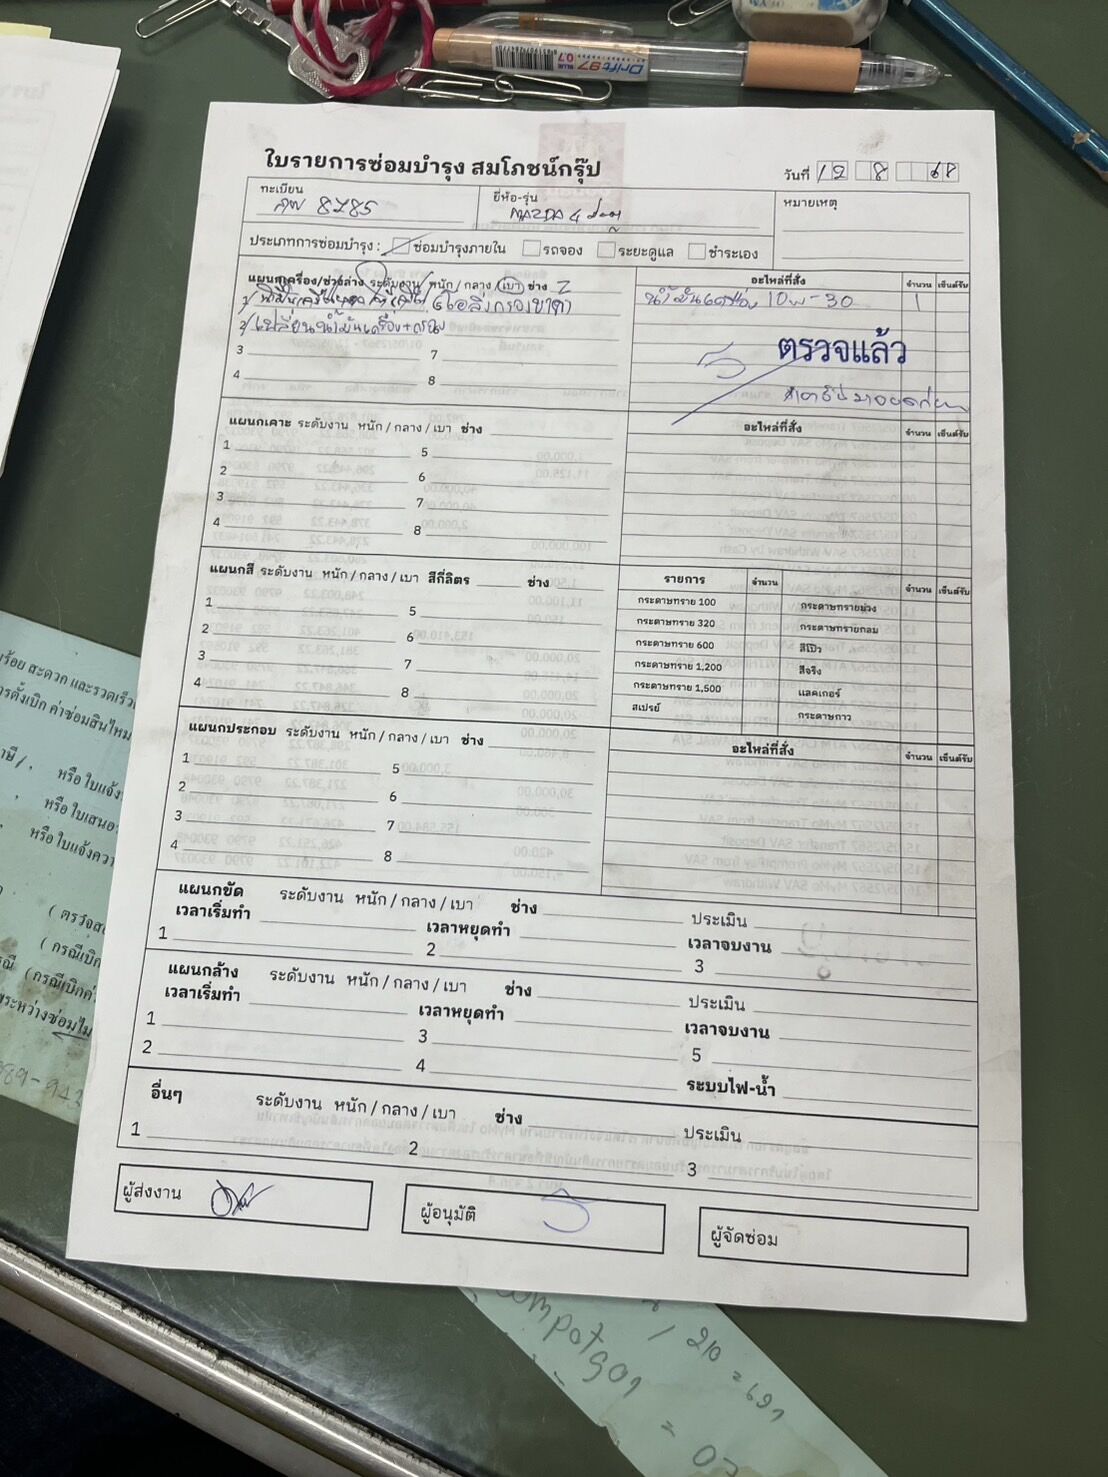 ใบรายการซ่อมบำรุง สมโภชน์กรุ๊ป
วันที่ 12 8 68
ทะเบียน 8785
ยี่ห้อ-รุ่น MAZDA 4 ประตู
หมายเหตุ
ประเภทการซ่อมบำรุง : ซ่อมบำรุงภายใน รถจอง ระยะดูแล ชำระเอง
แผนกเครื่อง/ช่วงล่าง ระดับงาน หนัก / กลาง / เบา ช่าง
อะไหล่ที่สั่ง จำนวน เซ็นต์รับ
1
น้ำมันเครื่อง 10w-30 1
2 เปลี่ยนน้ำมันเครื่อง+กรอง
3 7
4 8
ตรวจแล้ว
แผนกเคาะ ระดับงาน หนัก / กลาง / เบา ช่าง
อะไหล่ที่สั่ง จำนวน เซ็นต์รับ
1 5
2 6
3 7
4 8
แผนกสี ระดับงาน หนัก / กลาง / เบา สีกี่ลิตร ช่าง
รายการ จำนวน จำนวน เซ็นต์รับ
1 5
2 6
3 7
4 8
กระดาษทราย 100 กระดาษทรายม่วง
กระดาษทราย 320 กระดาษทรายกลม
กระดาษทราย 600 สีโป๊ว
กระดาษทราย 1,200 สีจริง
กระดาษทราย 1,500 แลคเกอร์
สเปรย์ กระดาษกาว
แผนกประกอบ ระดับงาน หนัก / กลาง / เบา ช่าง
อะไหล่ที่สั่ง จำนวน เซ็นต์รับ
1 5
2 6
3 7
4 8
แผนกขัด ระดับงาน หนัก / กลาง / เบา ช่าง ประเมิน
เวลาเริ่มทำ เวลาหยุดทำ เวลาจบงาน
1 2 3
แผนกล้าง ระดับงาน หนัก / กลาง / เบา ช่าง ประเมิน
เวลาเริ่มทำ เวลาหยุดทำ เวลาจบงาน
1 3 5
2 4 ระบบไฟ-น้ำ
อื่นๆ ระดับงาน หนัก / กลาง / เบา ช่าง ประเมิน
1 2 3
ผู้ส่งงาน
ผู้อนุมัติ
ผู้จัดซ่อม
Drift 97
BLUE 0.7
ร้อย สะดวก และรวดเร็ว
การตั้งเบิก ค่าซ่อมสินไหม
หรือ ใบแจ้ง
หรือ ใบเสนอ
หรือ ใบแจ้งควา
( ตรวจส
( กรณีเบิก
(กรณีเบิกค่
ระหว่างซ่อมไม่
089-943
/ 210 = 691